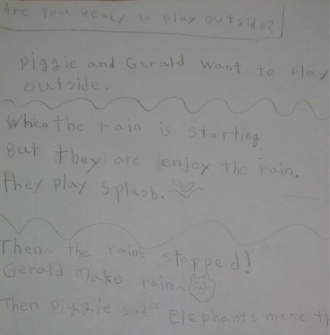 Are you Ready to play outside?
Piggie and Gerald want to play
outside.
When the rain is starting
But they are enjoy the rain.
they play splash.
Then the rains stopped!
Gerald make rain
Then Piggie said " Elephants make th